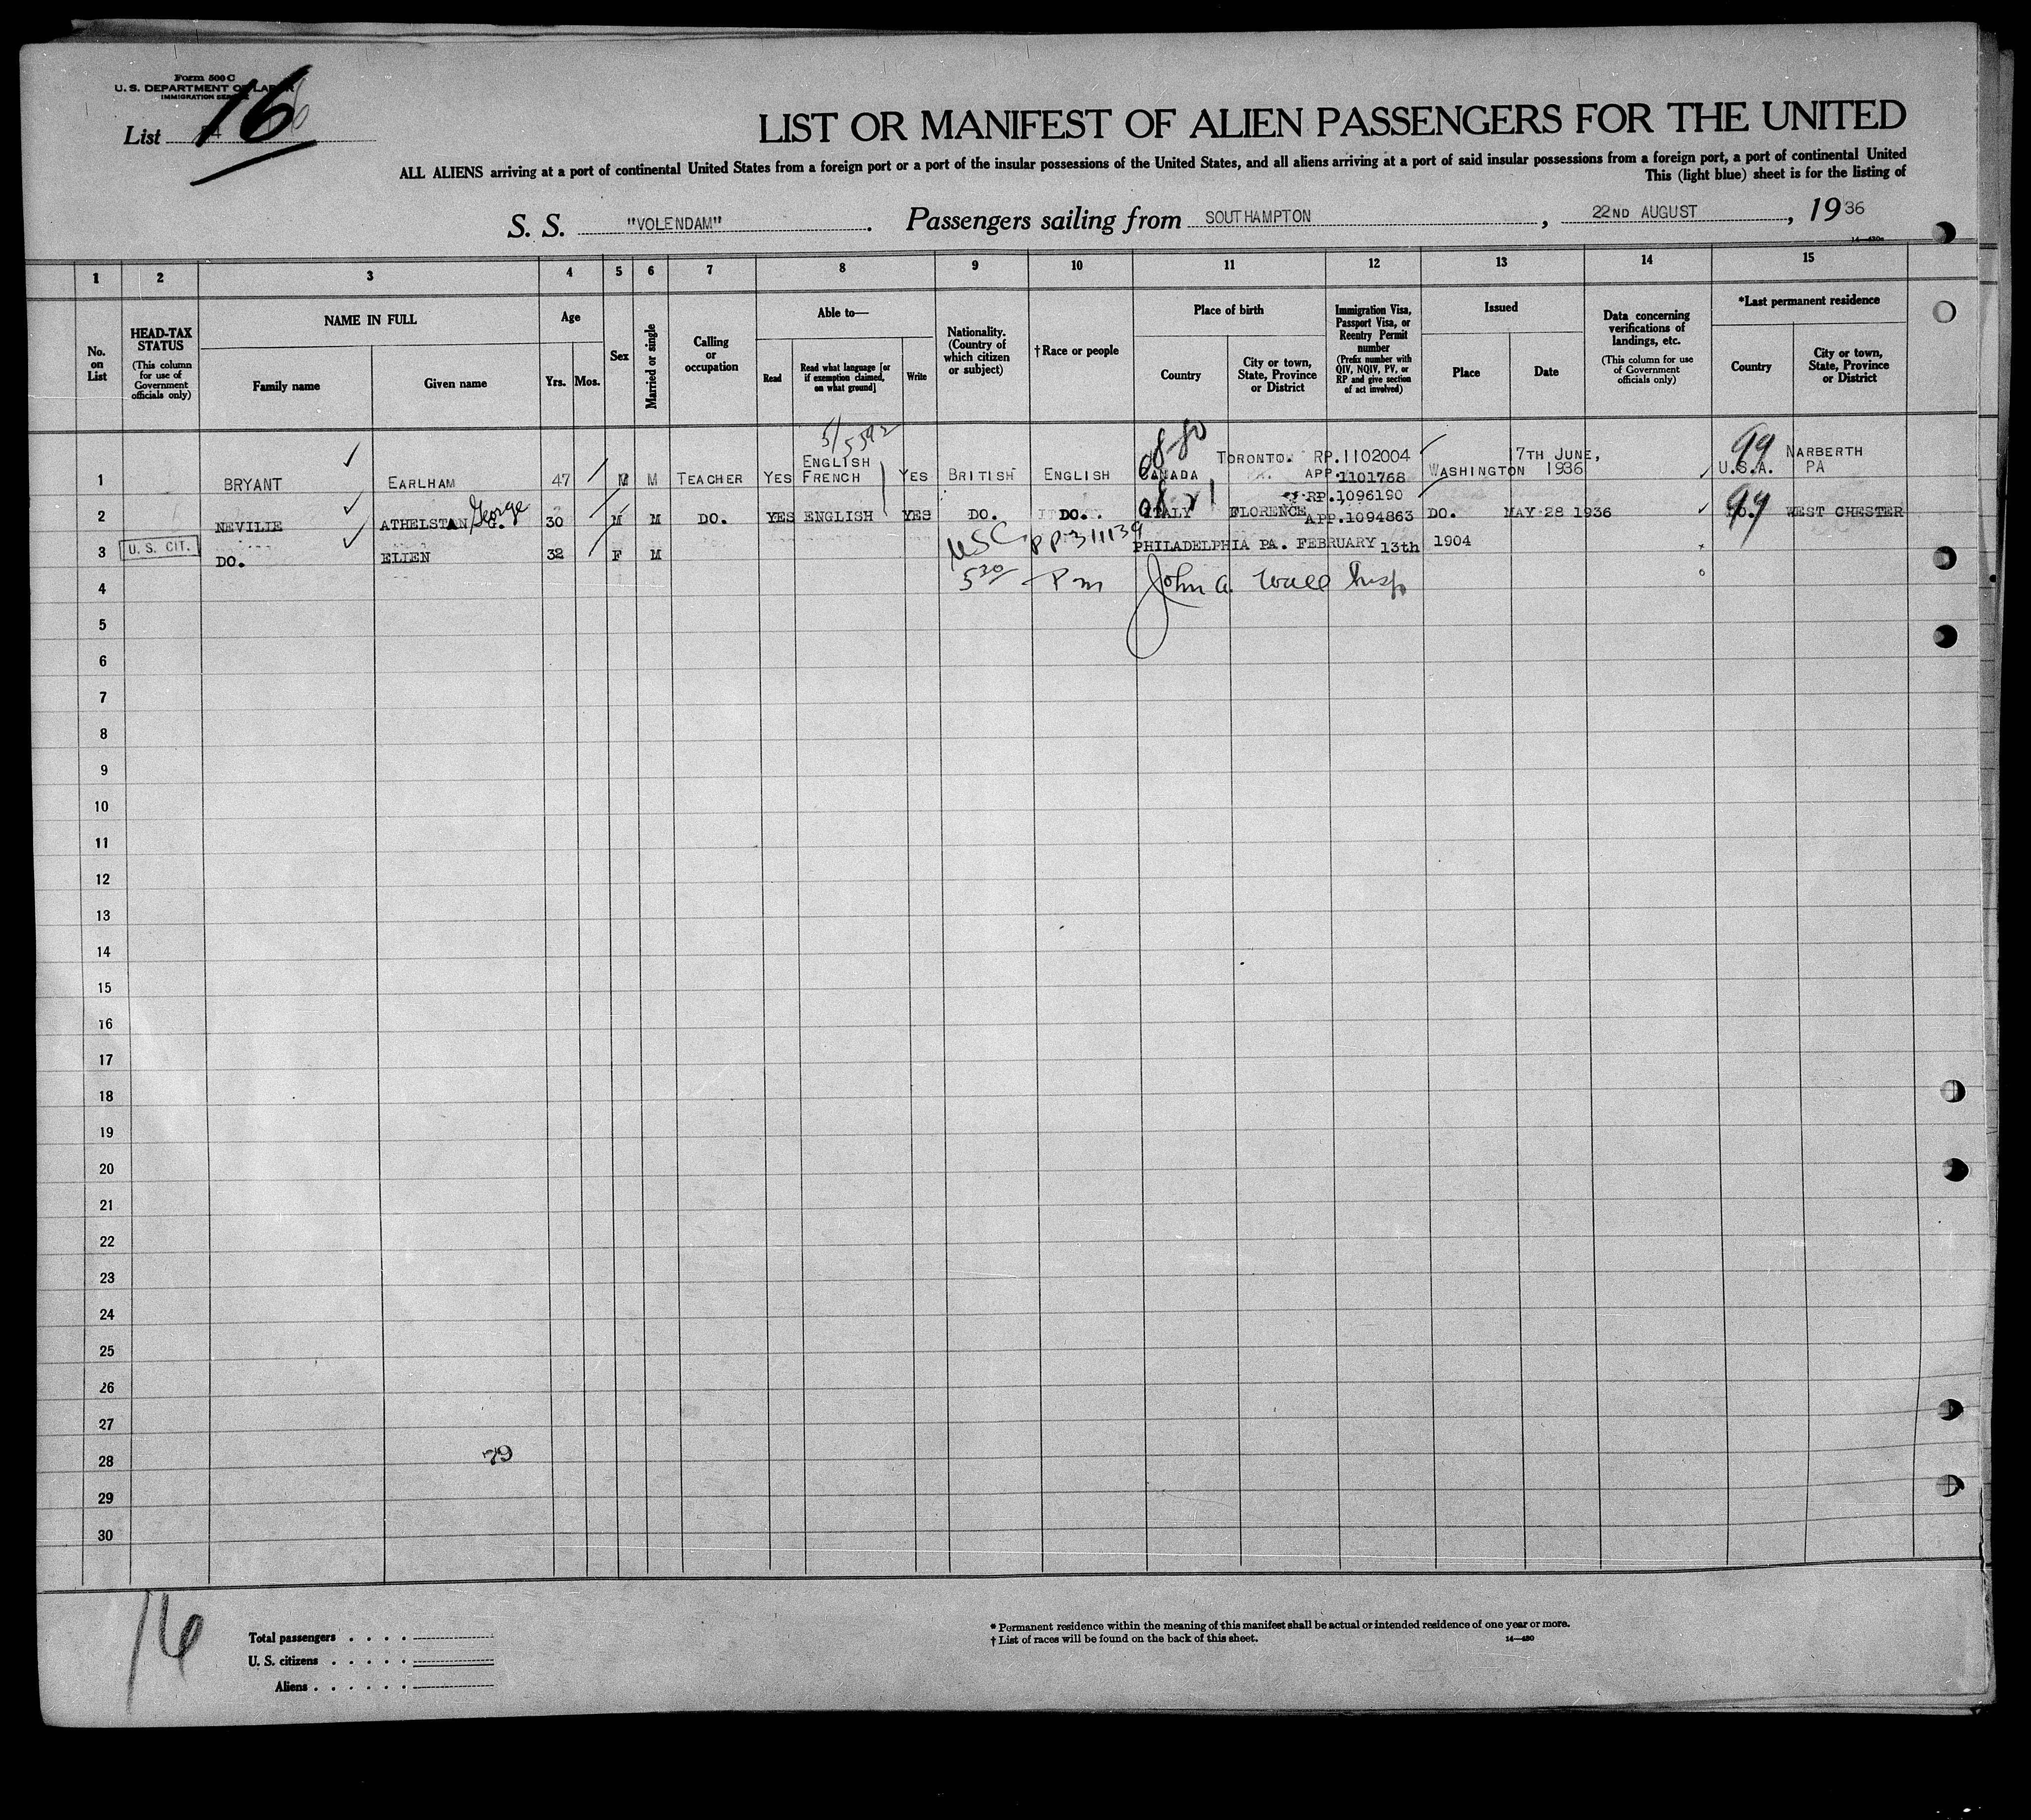 Form 500 C
U. S. DEPARTMENT OF LABOR
IMMIGRATION SERVICE
List 16
LIST OR MANIFEST OF ALIEN PASSENGERS FOR THE UNITED
ALL ALIENS arriving at a port of continental United States from a foreign port or a port of the insular possessions of the United States, and all aliens arriving at a port of said insular possessions from a foreign port, a port of continental United
This (light blue) sheet is for the listing of
S. S. "VOLENDAM". Passengers sailing from SOUTHAMPTON, 22ND AUGUST, 1936
14—430a
1 2 3 4 5 6 7 8 9 10 11 12 13 14 15
No. on List
HEAD-TAX STATUS
(This column for use of Government officials only)
NAME IN FULL
Family name
Given name
Age
Yrs. Mos.
Sex
Married or single
Calling or occupation
Able to—
Read
Read what language [or if exemption claimed, on what ground]
Write
Nationality. (Country of which citizen or subject)
† Race or people
Place of birth
Country
City or town, State, Province or District
Immigration Visa, Passport Visa, or Reentry Permit number
(Prefix number with QIV, NQIV, PV, or RP and give section of act involved)
Issued
Place
Date
Data concerning verifications of landings, etc.
(This column for use of Government officials only)
*Last permanent residence
Country
City or town, State, Province or District
5/5592
1 BRYANT EARLHAM 47 M M TEACHER YES ENGLISH FRENCH YES BRITISH ENGLISH CANADA TORONTO. RP.1102004 APP.1101768 WASHINGTON 17TH JUNE, 1936 U.S.A. 99 NARBERTH PA
2 NEVILLE ATHELSTAN G. George 30 M M DO. YES ENGLISH YES DO. DO. ITALY FLORENCE RP.1096190 APP.1094863 DO. MAY 28 1936 DO. 99 WEST CHESTER
3 U. S. CIT. DO. ELLEN 32 F M USC PP311139 PHILADELPHIA PA. FEBRUARY 13th 1904
4 5 30 Pm John A. Wall Insp
5
6
7
8
9
10
11
12
13
14
15
16
17
18
19
20
21
22
23
24
25
26
27
28 79
29
30
16
Total passengers
U. S. citizens
Aliens
* Permanent residence within the meaning of this manifest shall be actual or intended residence of one year or more.
† List of races will be found on the back of this sheet. 14—430